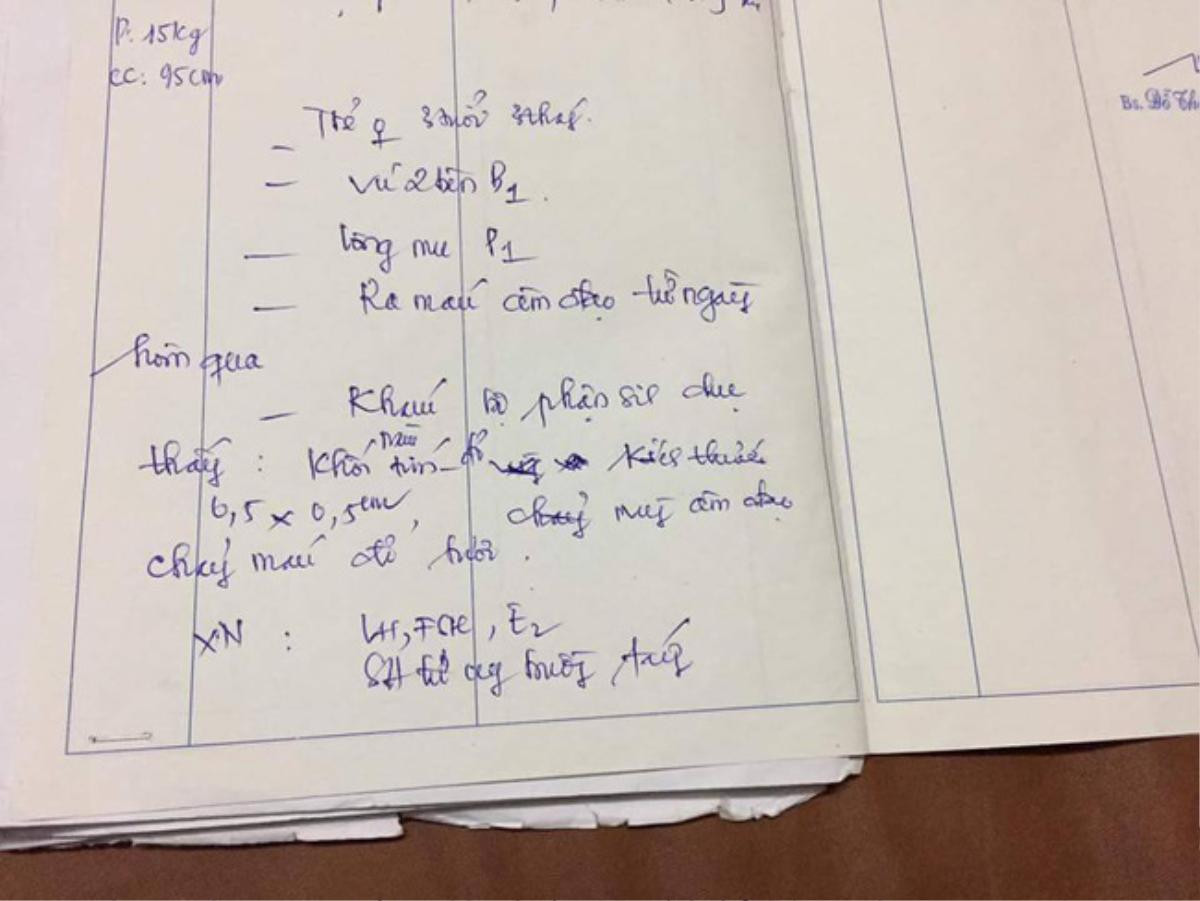 P: 15kg
CC: 95cm
Bs. Đỗ Th
Trẻ ♀ 3 tuổi 3 tháng.
– Vú 2 bên B1.
– Lông mu P1
– Ra máu âm đạo từ ngày
hôm qua
– Khám bộ phận sinh dục
thấy: Khối màu tím đỏ kích thước
0,5 x 0,5cm, máy âm đạo
chảy máu đỏ tươi.
XN: LH, FSH, E2
SÂ tử cung buồng trứng